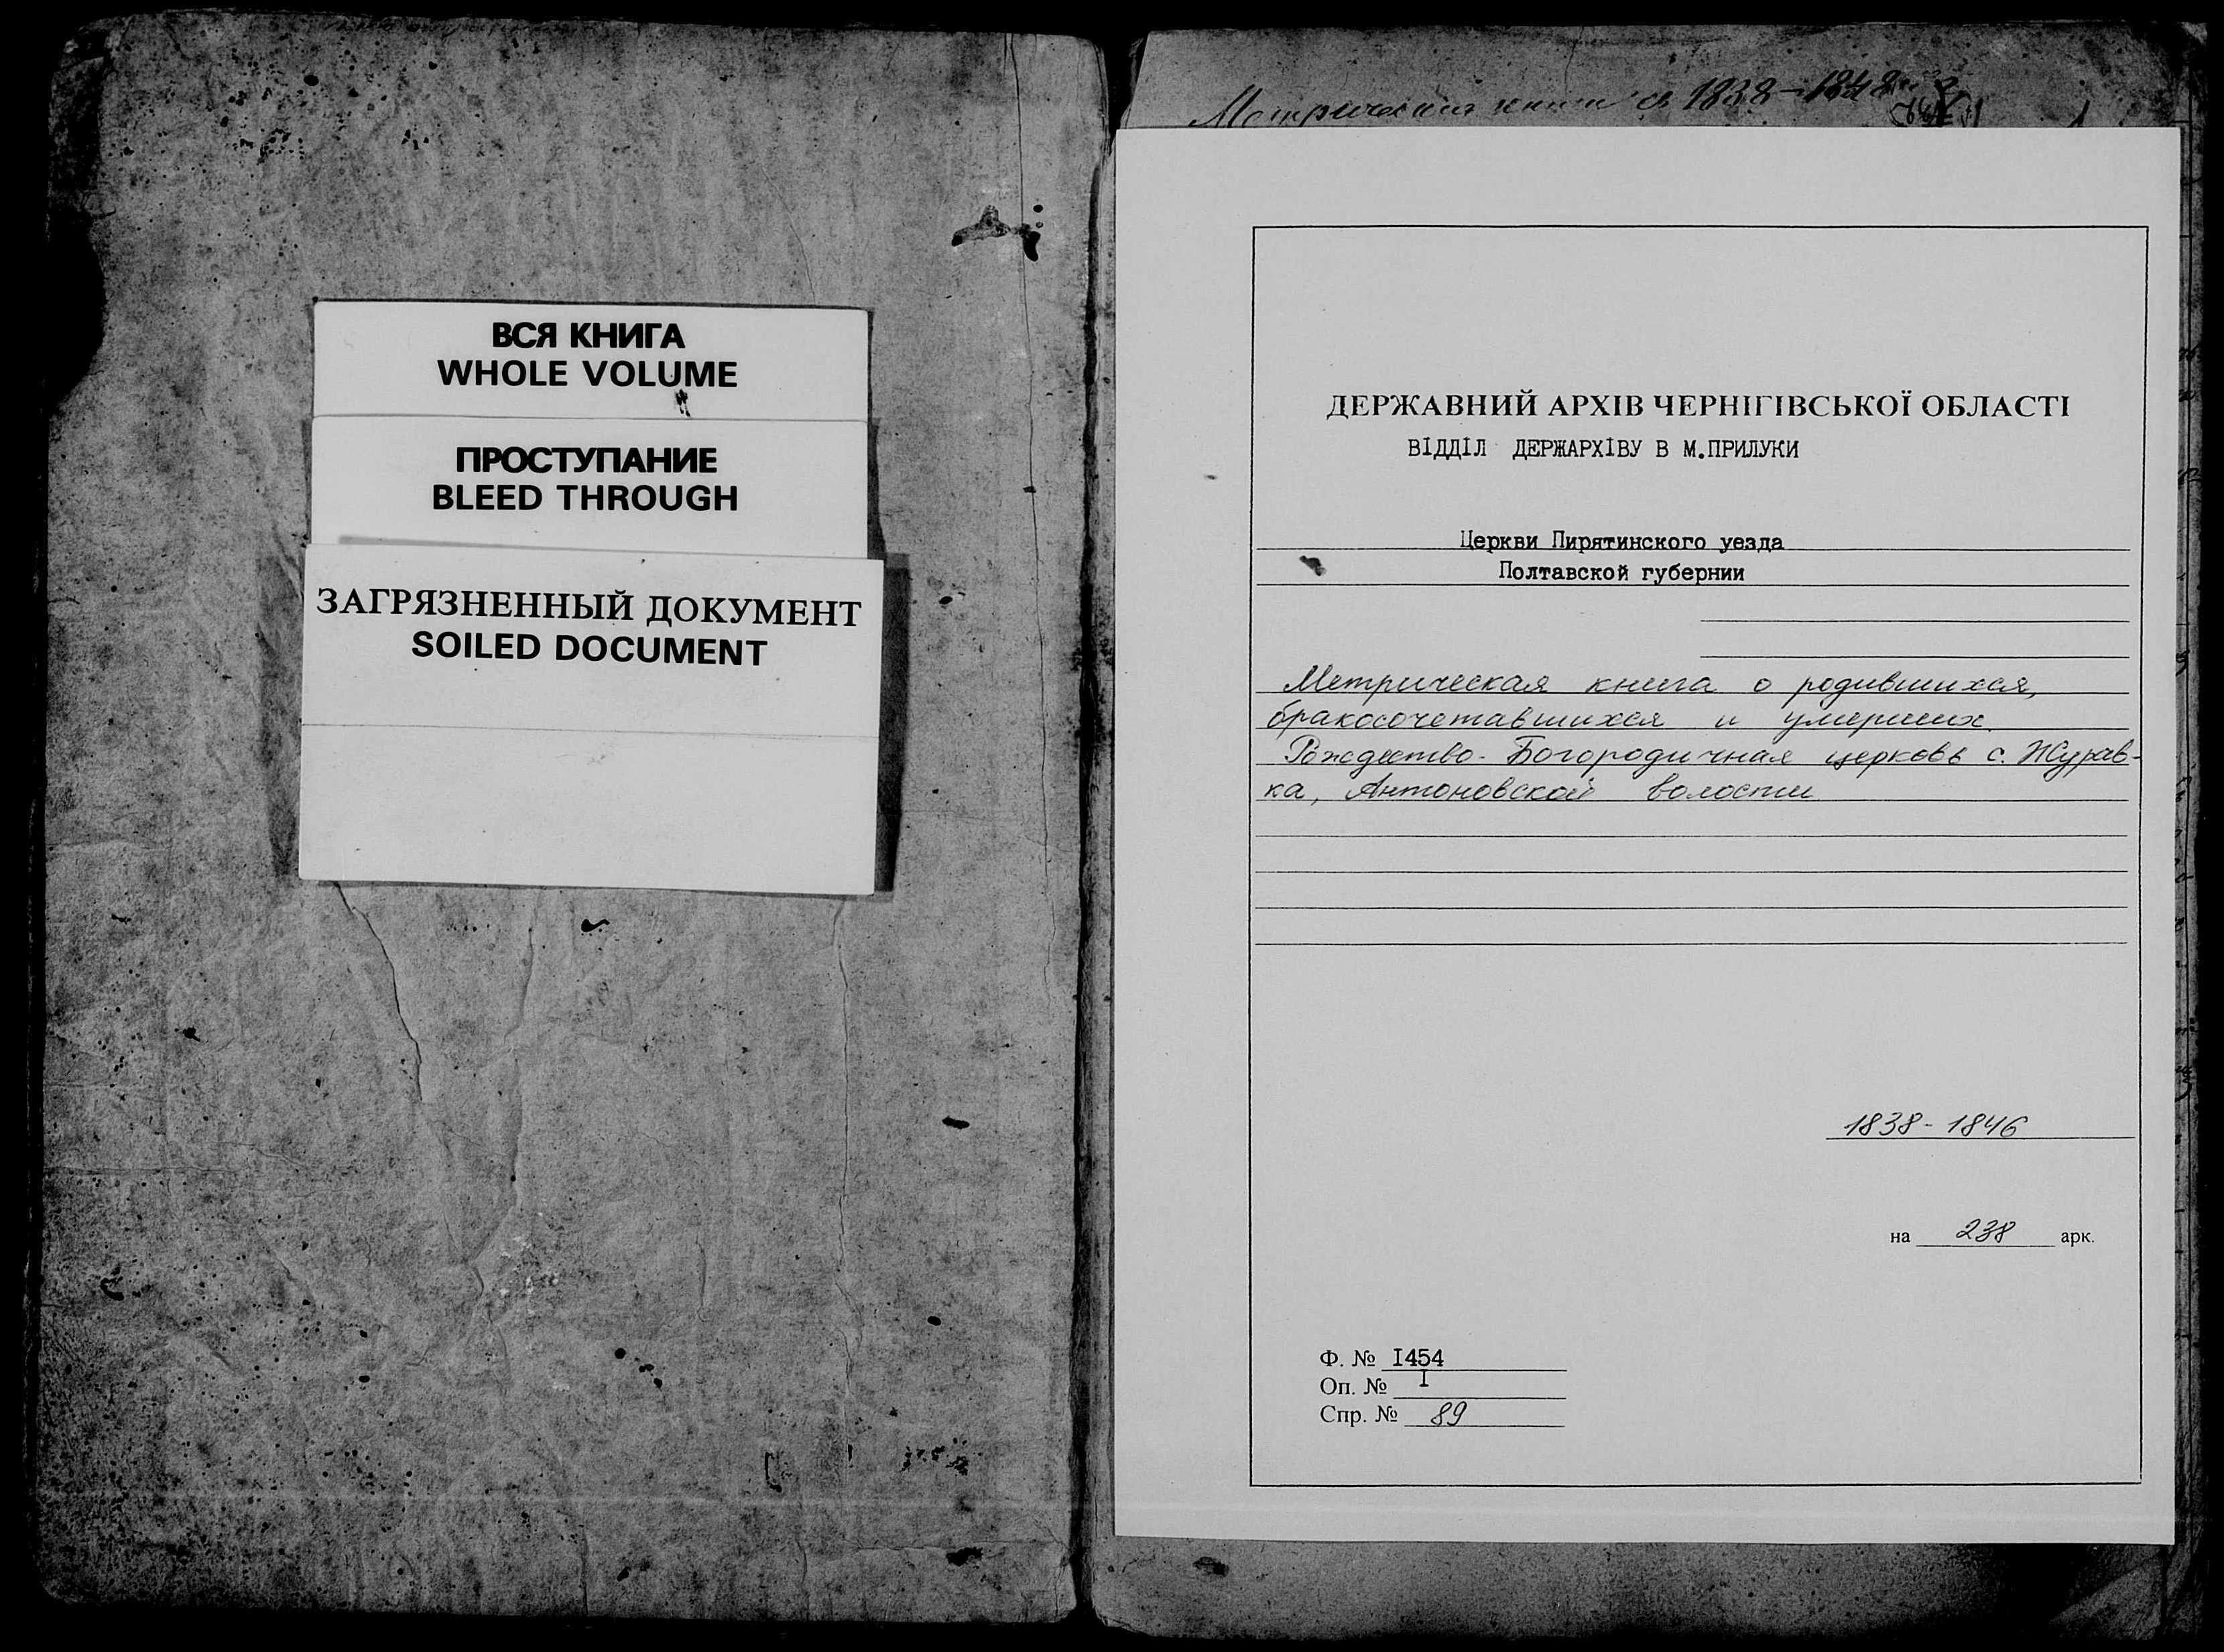 ВСЯ КНИГА
WHOLE VOLUME
ПРОСТУПАНИЕ
BLEED THROUGH
ЗАГРЯЗНЕННЫЙ ДОКУМЕНТ
SOILED DOCUMENT
Метрическия книги с 1838-1848
ДЕРЖАВНИЙ АРХІВ ЧЕРНІГІВСЬКОЇ ОБЛАСТІ
ВІДДІЛ ДЕРЖАРХІВУ В М.ПРИЛУКИ
Церкви Пирятинского уезда
Полтавской губернии
Метрическая книга о родившихся,
бракосочетавшихся и умерших
Рождество-Богородичная церковь с. Журав-
ка, Антоновской волости
1838-1846
на 238 арк.
Ф. № I454
Оп. № I
Спр. № 89